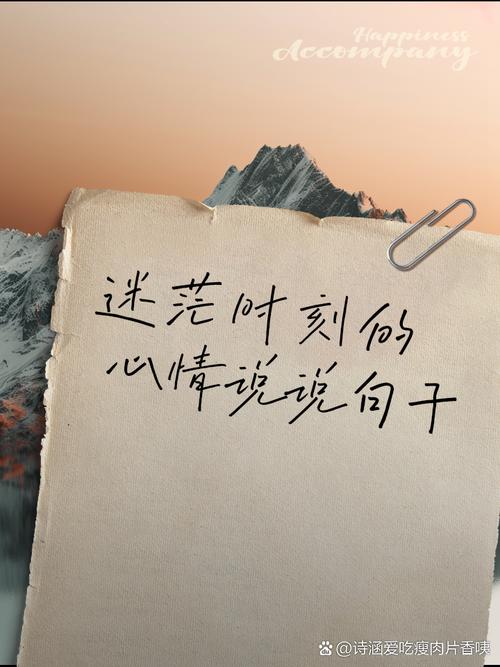 Happiness
Accompany
迷茫时刻的
心情说说句子
@诗涵爱吃瘦肉片香咦